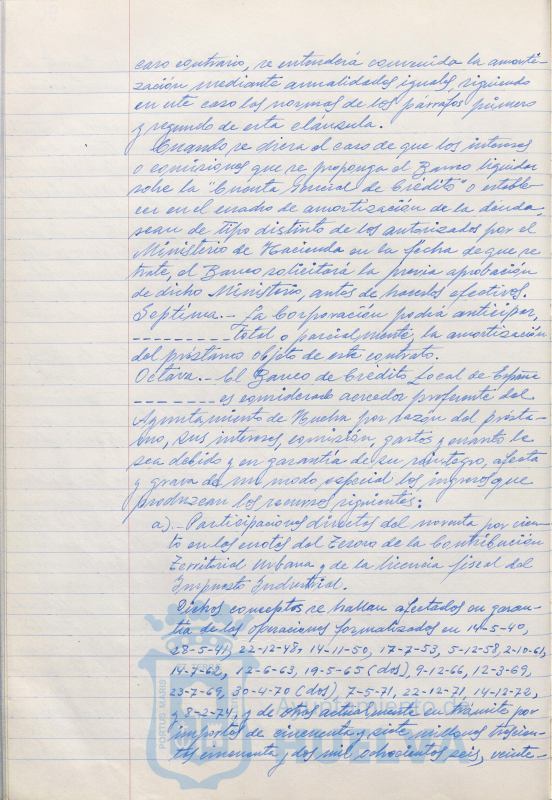 caso contrario, se entenderá convenida la amorti-
zación mediante anualidades iguales, siguiendo
en este caso las normas de los párrafos primero
y segundo de esta cláusula.
Cuando se diera el caso de que los intereses
o comisiones que se proponga el Banco liquidar
sobre la "Cuenta General de Crédito" o estable-
cer en el cuadro de amortización de la deuda,
sean de tipo distinto de los autorizados por el
Ministerio de Hacienda en la fecha de que se
trate, el Banco solicitará la previa aprobación
de dicho Ministerio, antes de hacerlos efectivos.
Septima.- La Corporación podrá anticipar,
-------- total o parcialmente, la amortización
del préstamo objeto de este contrato.
Octava.- El Banco de Crédito Local de España
------- es considerado acreedor preferente del
Ayuntamiento de Huelva por razón del présta-
mo, sus intereses, comisión, gastos y cuanto le
sea debido y en garantía de su reintegro, afecta
y grava de un modo especial los ingresos que
produzcan los recursos siguientes:
a).- Participaciones directas del noventa por cien-
to en las cuotas del Tesoro de la Contribución
Territorial Urbana y de la licencia fiscal del
Impuesto Industrial.
Dichos conceptos se hallan afectados en garan-
tía de las operaciones formalizadas en 14-5-40,
28-5-41, 22-12-48, 14-11-50, 17-7-53, 5-12-58, 2-10-61,
14-7-62, 12-6-63, 19-5-65 (dos), 9-12-66, 12-3-69,
23-7-69, 30-4-70 (dos), 7-5-71, 22-12-71, 14-12-72,
y 8-2-74, y de otras actualmente en trámite por
importes de cincuenta y siete millones trescien-
tas cincuenta y dos mil ochocientas seis, veinte-
PORTUS MARIS
Ayuntamiento de
HUELVA